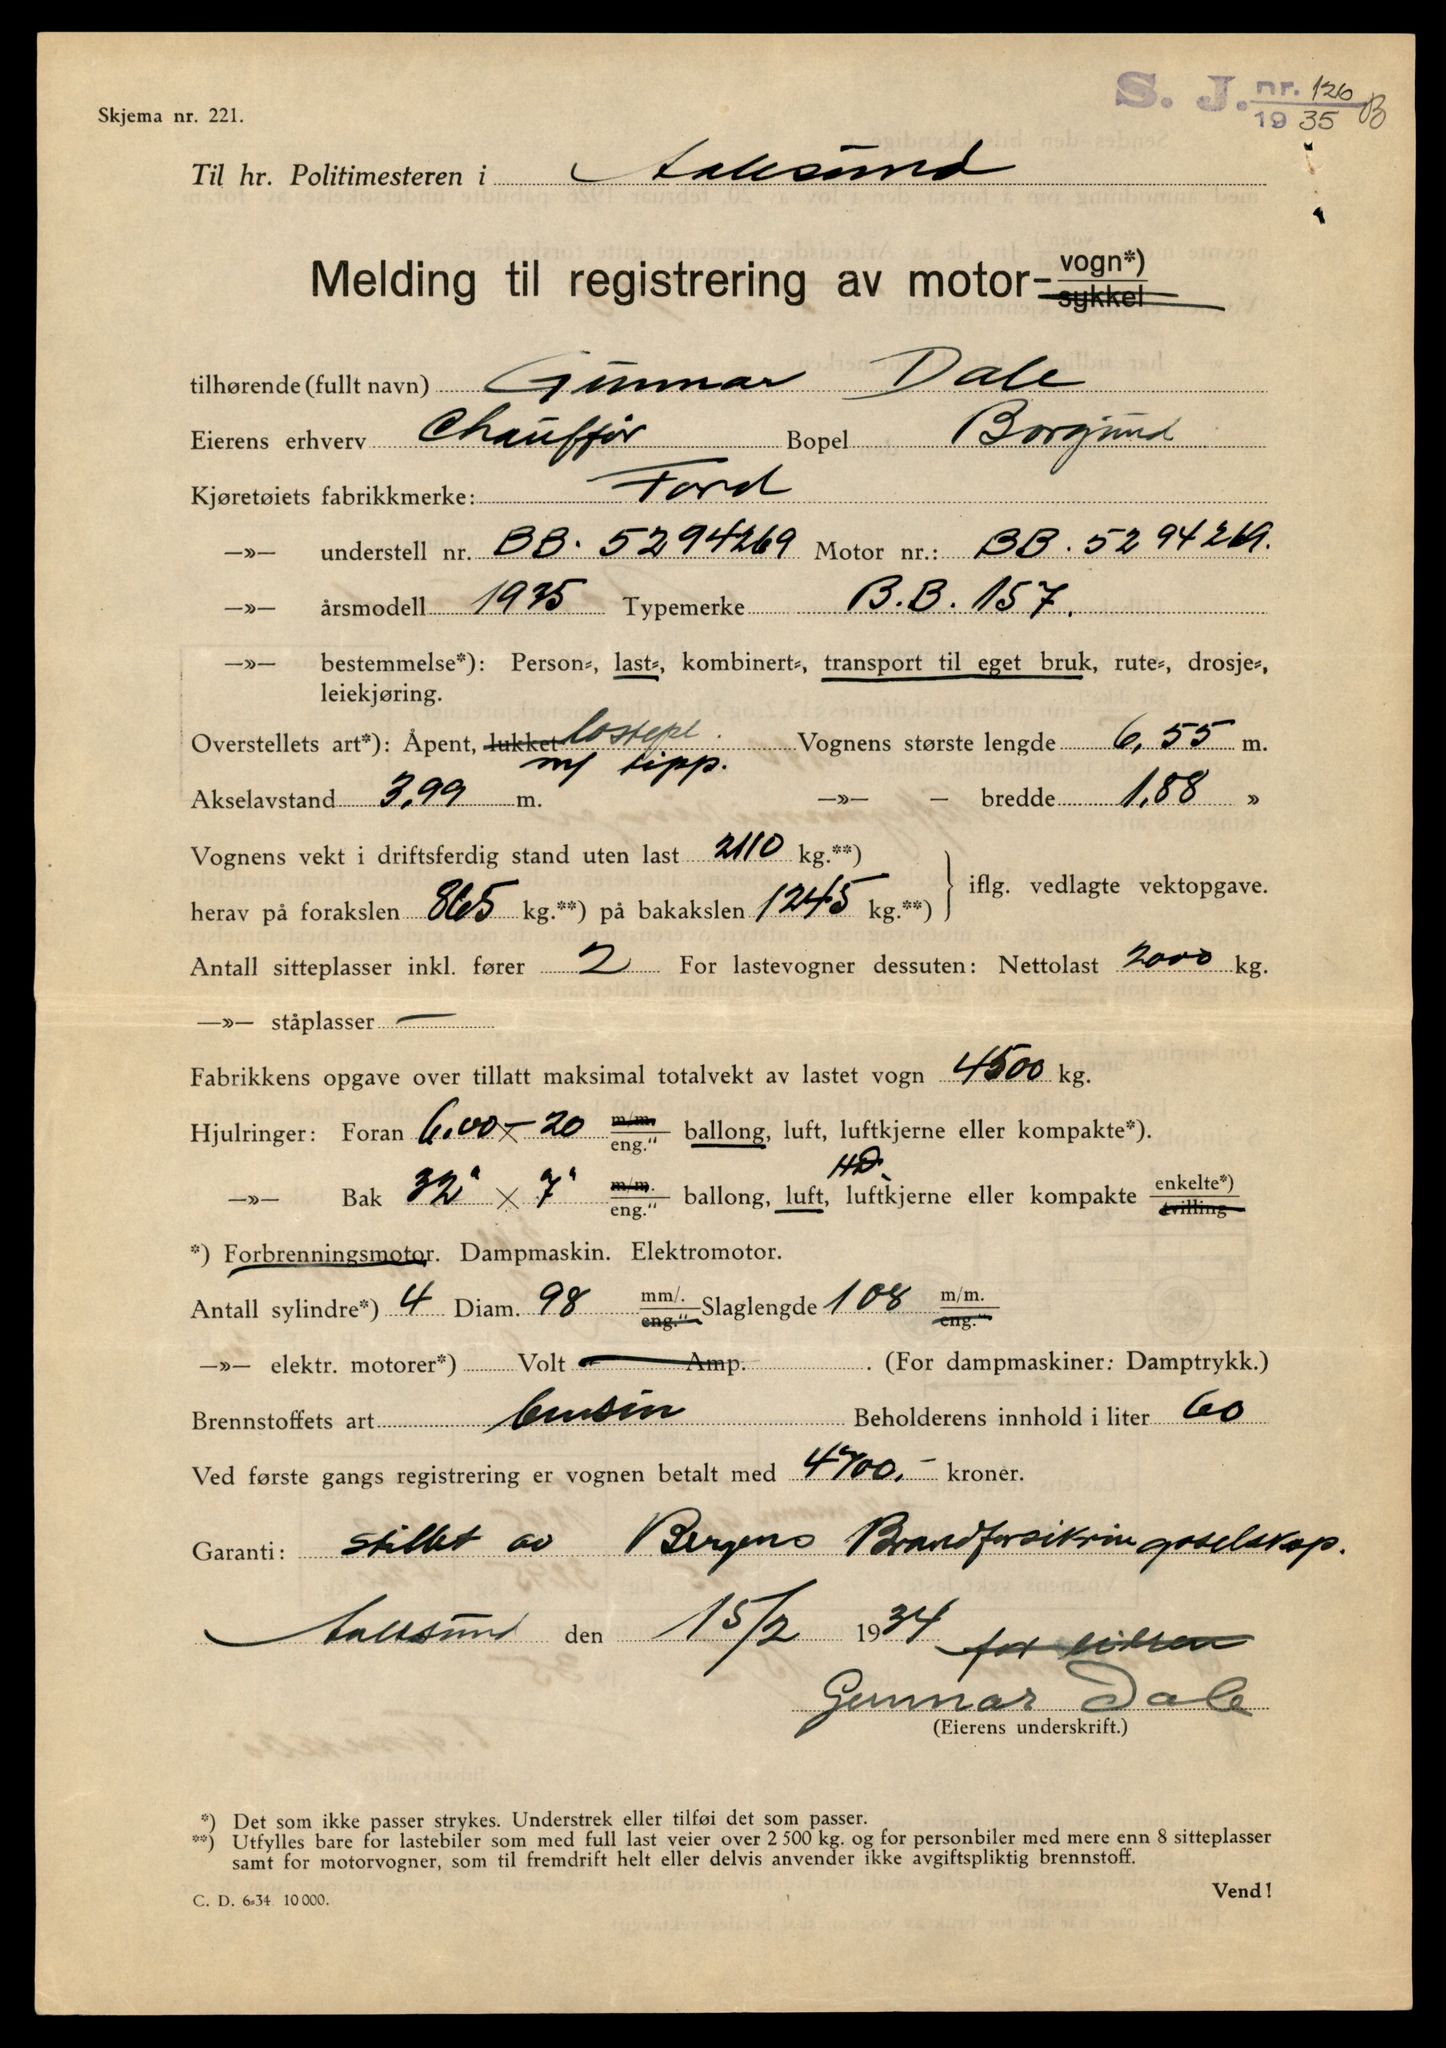 S. J. nr. 126 B
1935
Skjema nr. 221.
Til hr. Politimesteren i Aalesund
Melding til registrering av motor- vogn*)
sykkel
tilhørende (fullt navn) Gunnar Dale
Eierens erhverv Chauffør Bopel Borgund
Kjøretøiets fabrikkmerke: Ford
—»— understell nr. BB. 5294269 Motor nr.: BB. 5294269.
—»— årsmodell 1935 Typemerke B.B. 157.
—»— bestemmelse*): Person-, last-, kombinert-, transport til eget bruk, rute-, drosje-,
leiekjøring.
Overstellets art*): Åpent, lukket lastepl. Vognens største lengde 6,55 m.
m/ tipp.
Akselavstand 3,99 m. —»— — bredde 1,88 »
Vognens vekt i driftsferdig stand uten last 2110 kg.**)
herav på forakslen 865 kg.**) på bakakslen 1245 kg.**) } iflg. vedlagte vektopgave.
Antall sitteplasser inkl. fører 2 For lastevogner dessuten: Nettolast 2000 kg.
—»— ståplasser —
Fabrikkens opgave over tillatt maksimal totalvekt av lastet vogn 4500 kg.
Hjulringer: Foran 6.00 × — 20 m/m. eng." ballong, luft, luftkjerne eller kompakte*).
HD.
—»— Bak 32" × 7" m/m. eng." ballong, luft, luftkjerne eller kompakte enkelte*) tvilling
*) Forbrenningsmotor. Dampmaskin. Elektromotor.
Antall sylindre*) 4 Diam. 98 mm/. eng." Slaglengde 108 m/m. eng."
—»— elektr. motorer*) Volt — Amp. . (For dampmaskiner: Damptrykk.)
Brennstoffets art bensin Beholderens innhold i liter 60
Ved første gangs registrering er vognen betalt med 4700,- kroner.
Garanti: stillet av Bergens Brandforsikringsselskap.
Aalesund den 15/2 1934 for eieren
Gunnar Dale
(Eierens underskrift.)
*) Det som ikke passer strykes. Understrek eller tilføi det som passer.
**) Utfylles bare for lastebiler som med full last veier over 2 500 kg. og for personbiler med mere enn 8 sitteplasser
samt for motorvogner, som til fremdrift helt eller delvis anvender ikke avgiftspliktig brennstoff.
C. D. 6-34 10 000.
Vend!